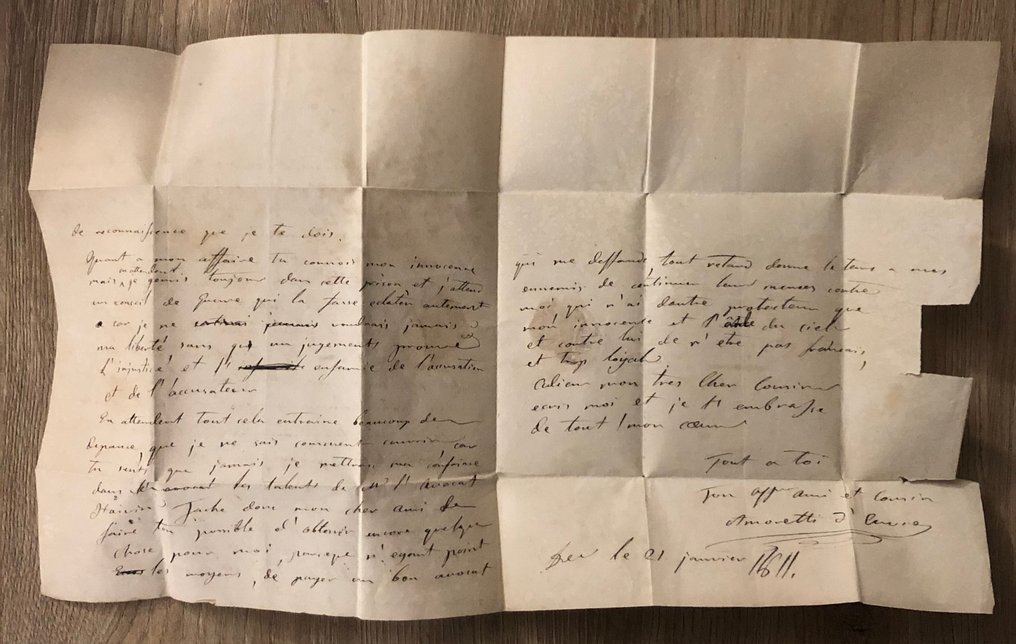 de reconnaissance que je te dois.
Quant a mon affaire tu connois mon innocence
mais je gemis toujour dans cette prison et j'attend
un conseil de guerre qui la fasse eclater autrement
car je ne voudrais jamais
ma liberté sans qu un jugement prouve
L'injustice et l' infamie de l'accusation
et de l'accusateur
En attendent tout cela entraine beaucoup de
depance, que je ne sais comment couvrir car
tu sents que jamais je mettrai ma confiance
dans les talents de Mr l'avocat
Tache donc mon cher ami de
faire ton possible d'obtenir encore quelque
chose pour moi, parceque n'eyant point
les moyens, de payer un bon avocat
qui me deffende, tout retard donne le tems a mes
ennemis de continuer leur menées contre
moi qui n'ai d'autre protecteur que
mon innocence et l' du ciel
et contre lui de n'etre pas francais,
et trop loyal
adieu mon tres Cher Cousin
ecris moi et je t'embrasse
de tout mon cœur
Tout a toi
Ton affne ami et Cousin
Amoretti d'
le 21 janvier 1811.